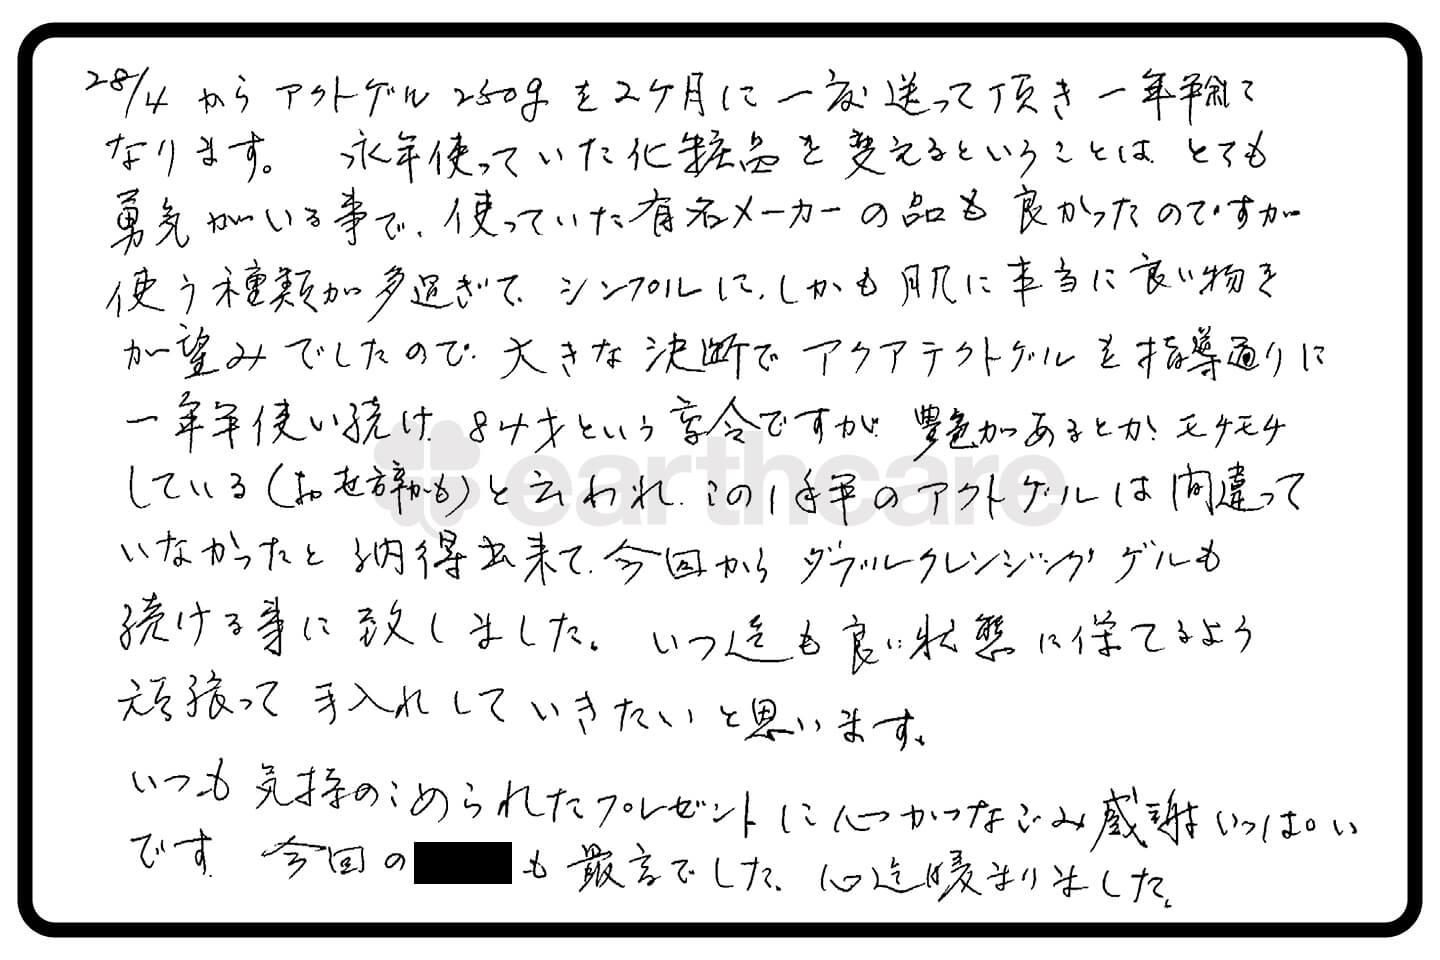 28/4 からアクトゲル250gを2ケ月に一度送って頂き一年半程に
なります。 永年使っていた化粧品を変えるということは とても
勇気がいる事で、使っていた有名メーカーの品も良かったのですが
使う種類が多過ぎて、シンプルに、しかも肌に本当に良い物を
が望みでしたので、大きな決断でアクアテクトゲルを指導通りに
一年半使い続け、84才という高令ですが 艶色があるとか、モチモチ
している(お世辞かも)と云われ、この1年半のアクトゲルは間違って
いなかったと納得出来て、今回からダブルクレンジングゲルも
続ける事に致しました。 いつ迄も良い状態に保てるよう
頑張って手入れしていきたいと思います。
いつも気持のこめられたプレゼントに心がなごみ感謝いっぱい
です。 今回の も最高でした。心迄暖まりました。
earthcare